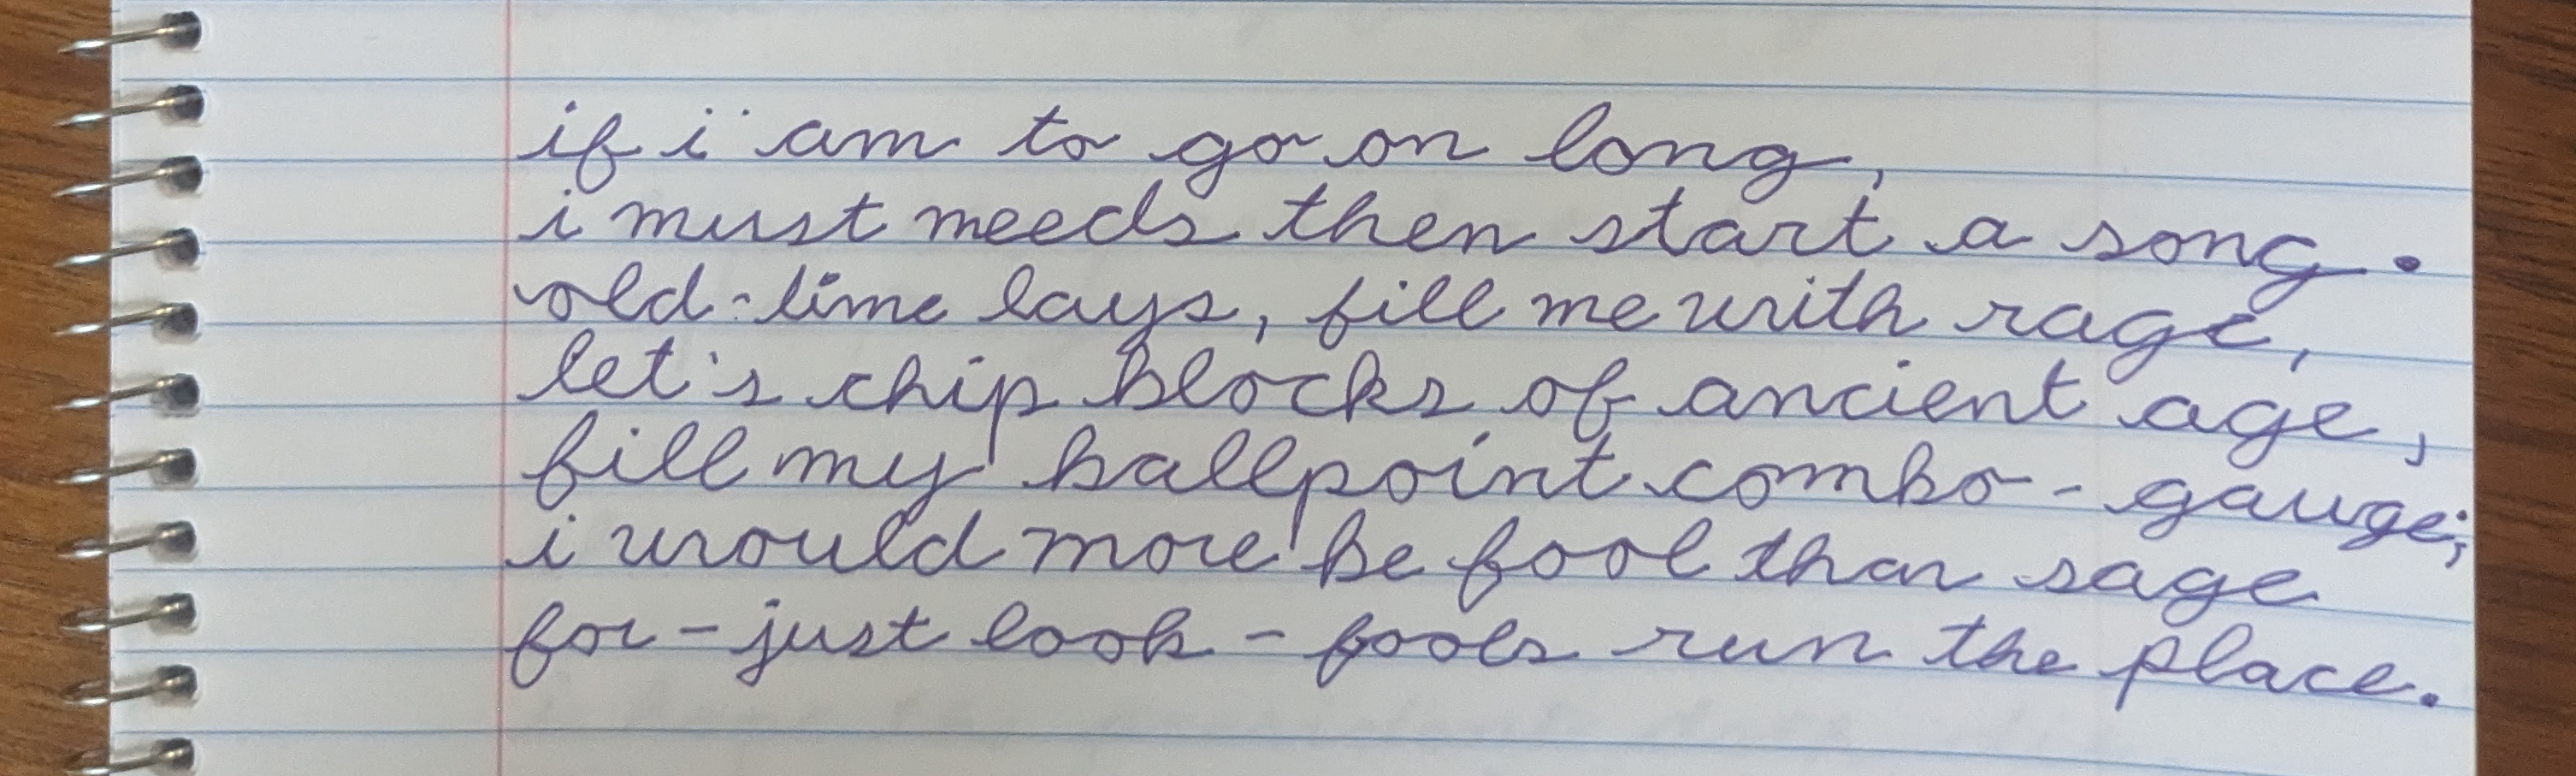 if i am to go on long,
i must needs then start a song.
old-time lays, fill me with rage,
let's chip blocks of ancient age,
fill my ballpoint combo-gauge;
i would more be fool than sage
for - just look - fools run the place.